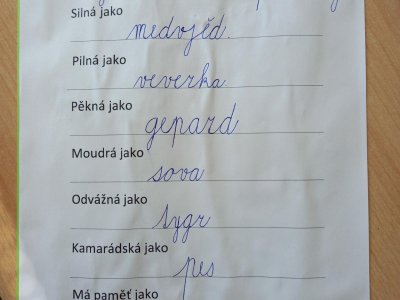 Silná jako
medvjěd.
Pilná jako
veverka
Pěkná jako
gepard
Moudrá jako
sova
Odvážná jako
tygr
Kamarádská jako
pes
Má paměť jako